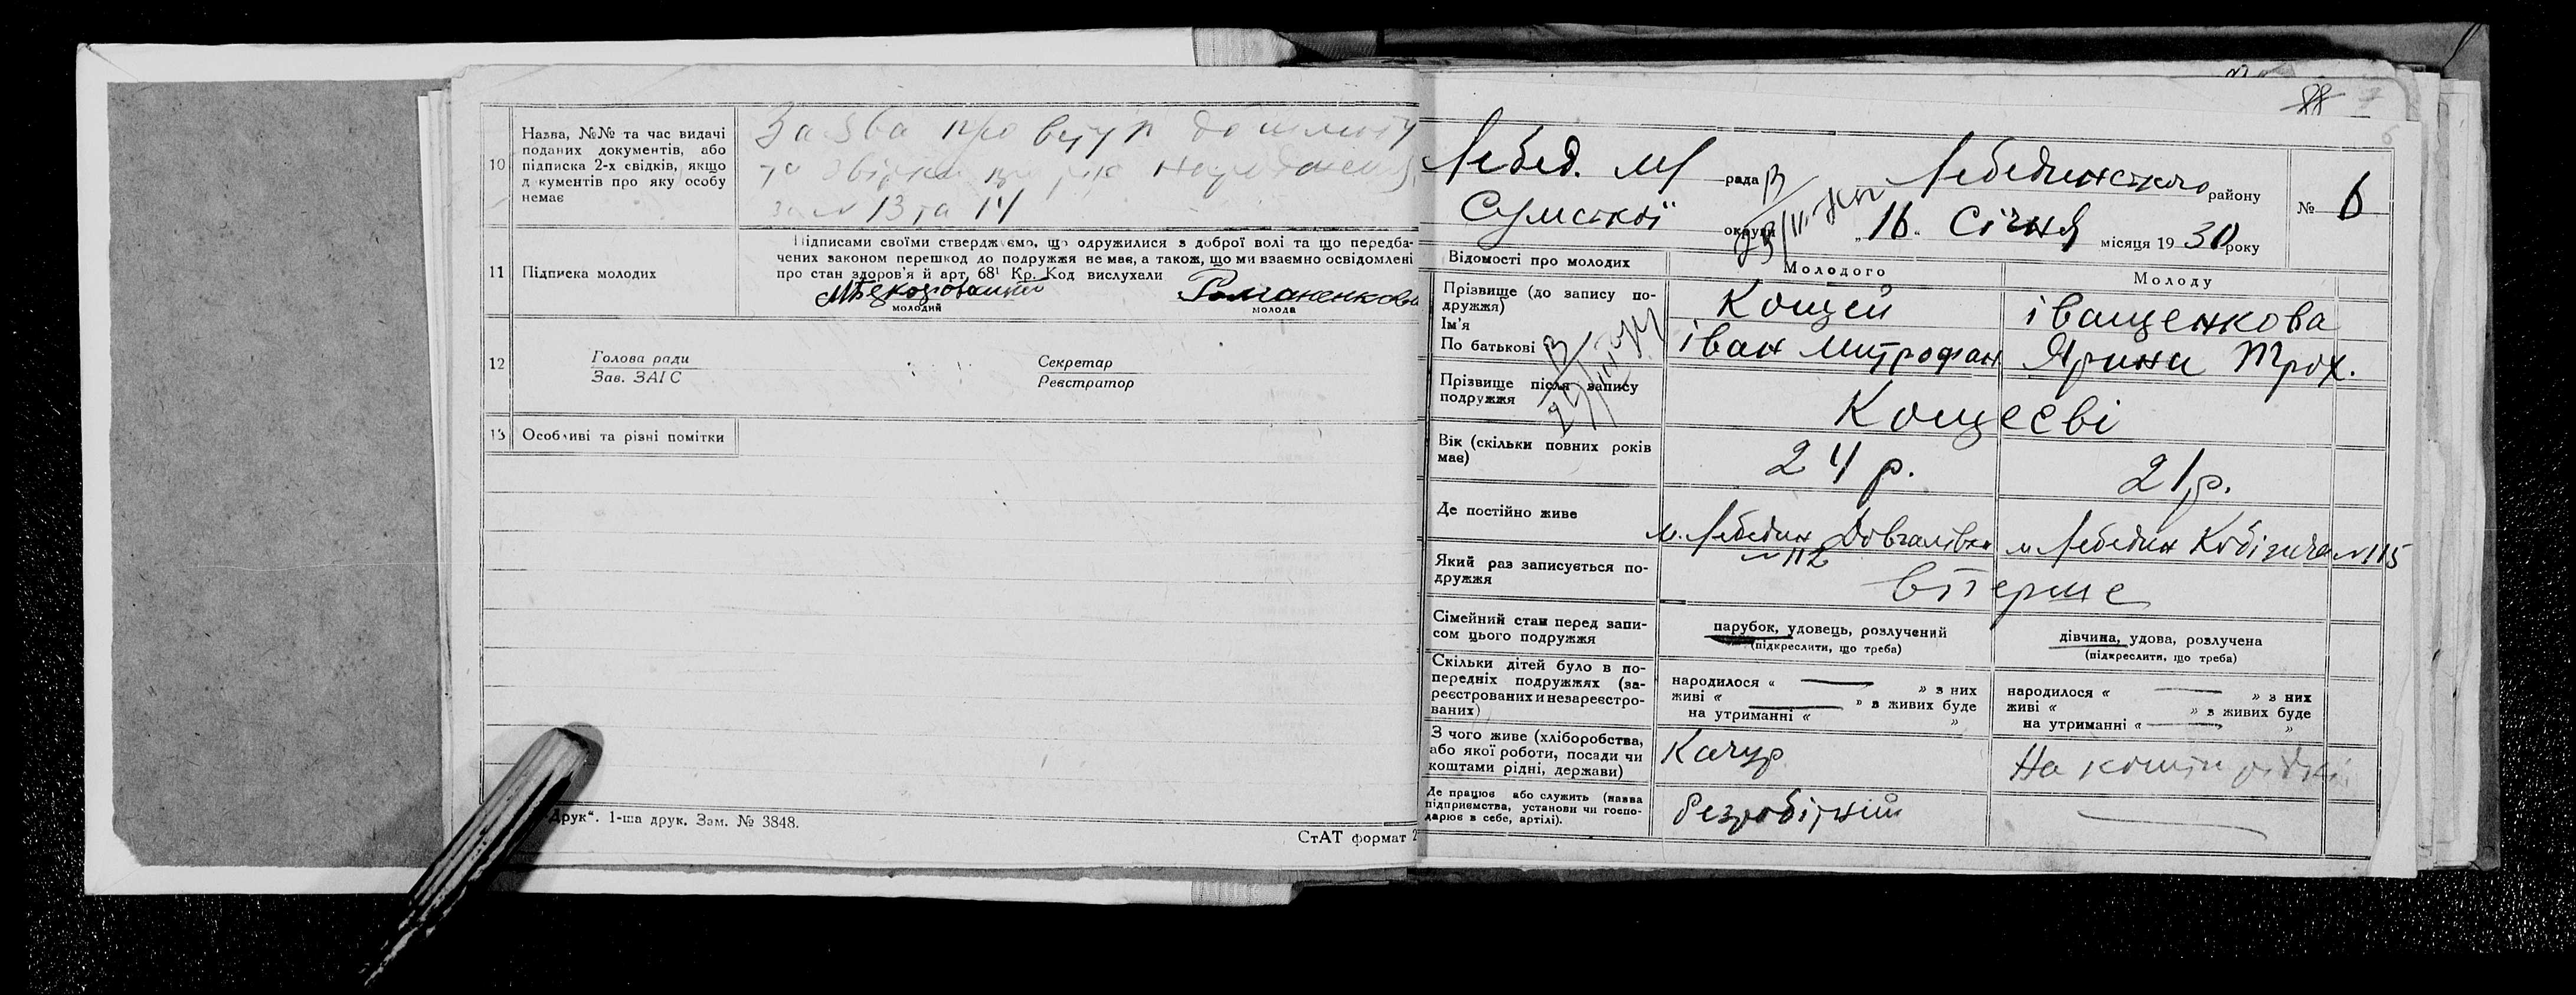 10 Назва, №№ та час видачі
поданих документів, або
підписка 2-х свідків, якщо
д кументів про яку особу
немає
Заява про вступ до шлюбу
та звірки про рік народження
за № 13 та 14
11 Підписка молодих
Підписами своїми стверджуємо, що одружилися з доброї волі та що передба-
чених законом перешкод до подружжя не має, а також, що ми взаємно освідомлені
про стан здоров'я й арт. 68¹ Кр. Код вислухали
Романенкова
молодий молода
12 Голова ради
Зав. ЗАГС
Секретар
Реєстратор
13 Особливі та різні помітки
Друк“. 1-ша друк. Зам. № 3848.
СтАТ формат 2
88
6
Лебед. М рада Лебединського району
№ 6
Сумської округи „16„ Січня місяця 1930 року
Відомості про молодих
Молодого
Молоду
Прізвище (до запису по-
дружжя)
Ім'я
По батькові
Кощей
Іван Митрофан
Іващенкова
Ярина Трох.
Прізвище після запису
подружжя
Кощеєві
Вік (скільки повних років
має)
24 р.
21 р.
Де постійно живе
м. Лебедин Довгалівка
№ 112
м Лебедин Кобіжча №115
Який раз записується по-
дружжя
вперше
Сімейний стан перед запи-
сом цього подружжя
парубок, удовець, розлучений
(підкреслити, що треба)
дівчина, удова, розлучена
(підкреслити, що треба)
Скільки дітей було в по-
передніх подружжях (за-
реєстрованих и незареєстро-
ваних)
народилося « — » з них
живі « — » з живих буде
на утриманні « »
народилося « — » з них
живі « » з живих буде
на утриманні « — »
З чого живе (хліборобства,
або якої роботи, посади чи
коштами рідні, держави)
Качур
На кошти рідні
Де працює або служить (назва
підприємства, установи чи госпо-
дарює в себе, артілі).
безробітний
—